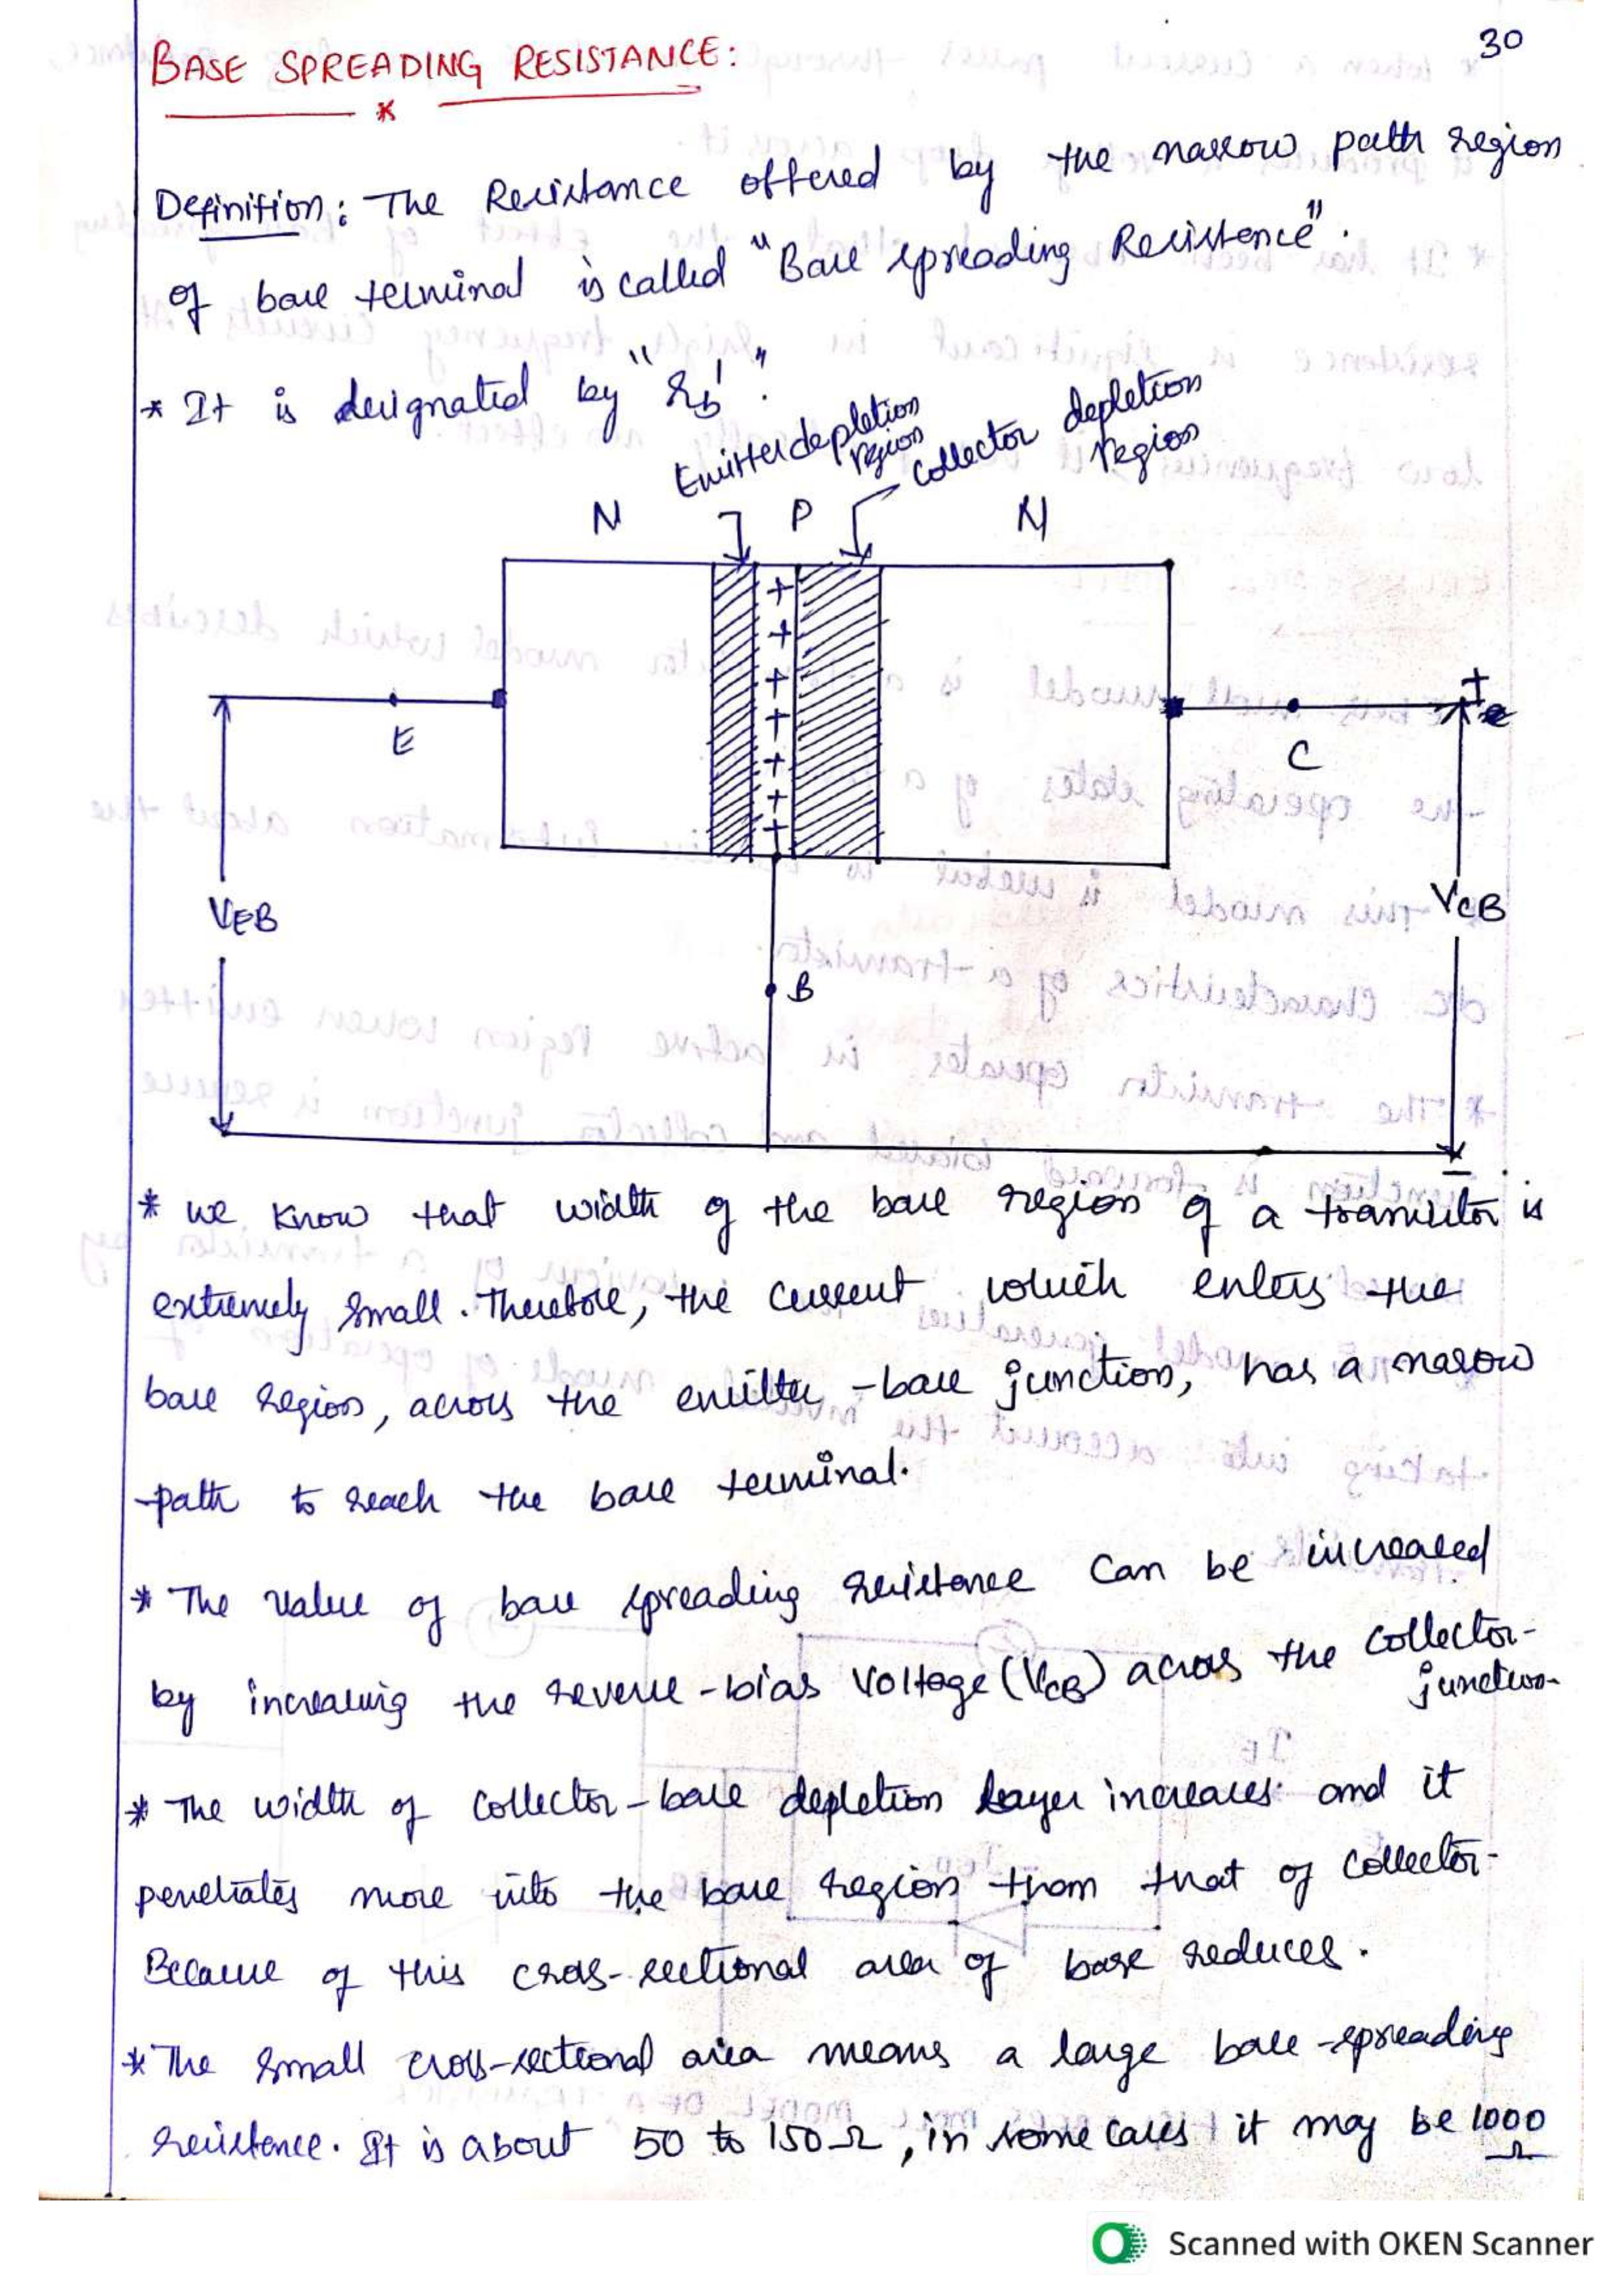 30
BASE SPREADING RESISTANCE:
Definition: The Resistance offered by the narrow path region
of base terminal is called "Base spreading Resistence".
* It is designated by "rb'".
Emitter depletion
region
collector depletion
region
N P N
+
+
+
+
+
+
+
E
C
+
VEB
VCB
B
-
* we know that width of the base region of a transistor is
extremely small. Therefore, the current which enters the
base region, across the emitter-base junction, has a narow
path to reach the base terminal.
* The value of base spreading resistance can be increased
by increasing the reverse-bias voltage (VCB) across the collector-
junction
* The width of collector-base depletion layer increases and it
penetrates more into the base region than that of collector-
Because of this cross-sectional area of base reduces.
* The small cross-sectional area means a large base-spreading
resistence. It is about 50 to 150Ω, in some cases it may be 1000
Ω
Scanned with OKEN Scanner